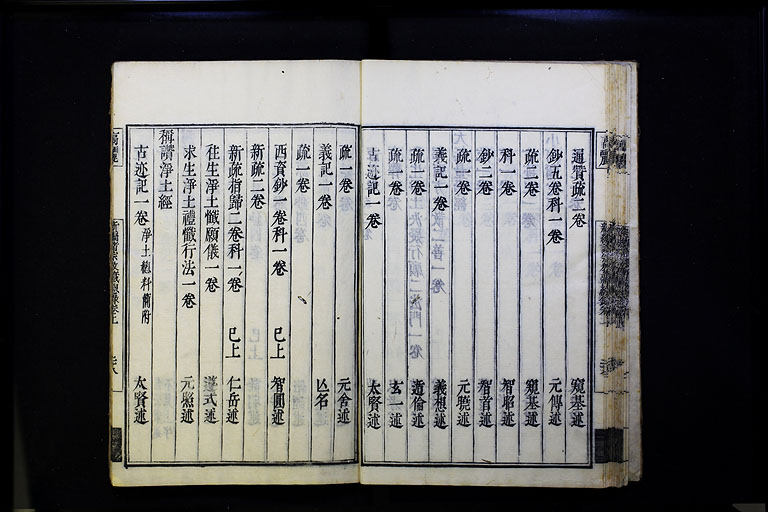 通贊疏二卷 窺基述
鈔五卷科一卷 元傳述
疏二卷 窺基述
科一卷 智昭述
鈔二卷 智首述
疏一卷 元曉述
義記一卷 義想述
疏一卷 道倫述
疏一卷 玄一述
古迹記一卷 太賢述
疏一卷 元舍述
義記一卷 亾名
疏一卷
西資鈔一卷科一卷 已上 智圓述
新疏二卷
新疏指歸二卷科一卷 已上 仁岳述
往生淨土懺願儀一卷 遵式述
求生淨土禮懺行法一卷 元照述
稱讚淨土經
古迹記一卷 淨土總料簡附 太賢述